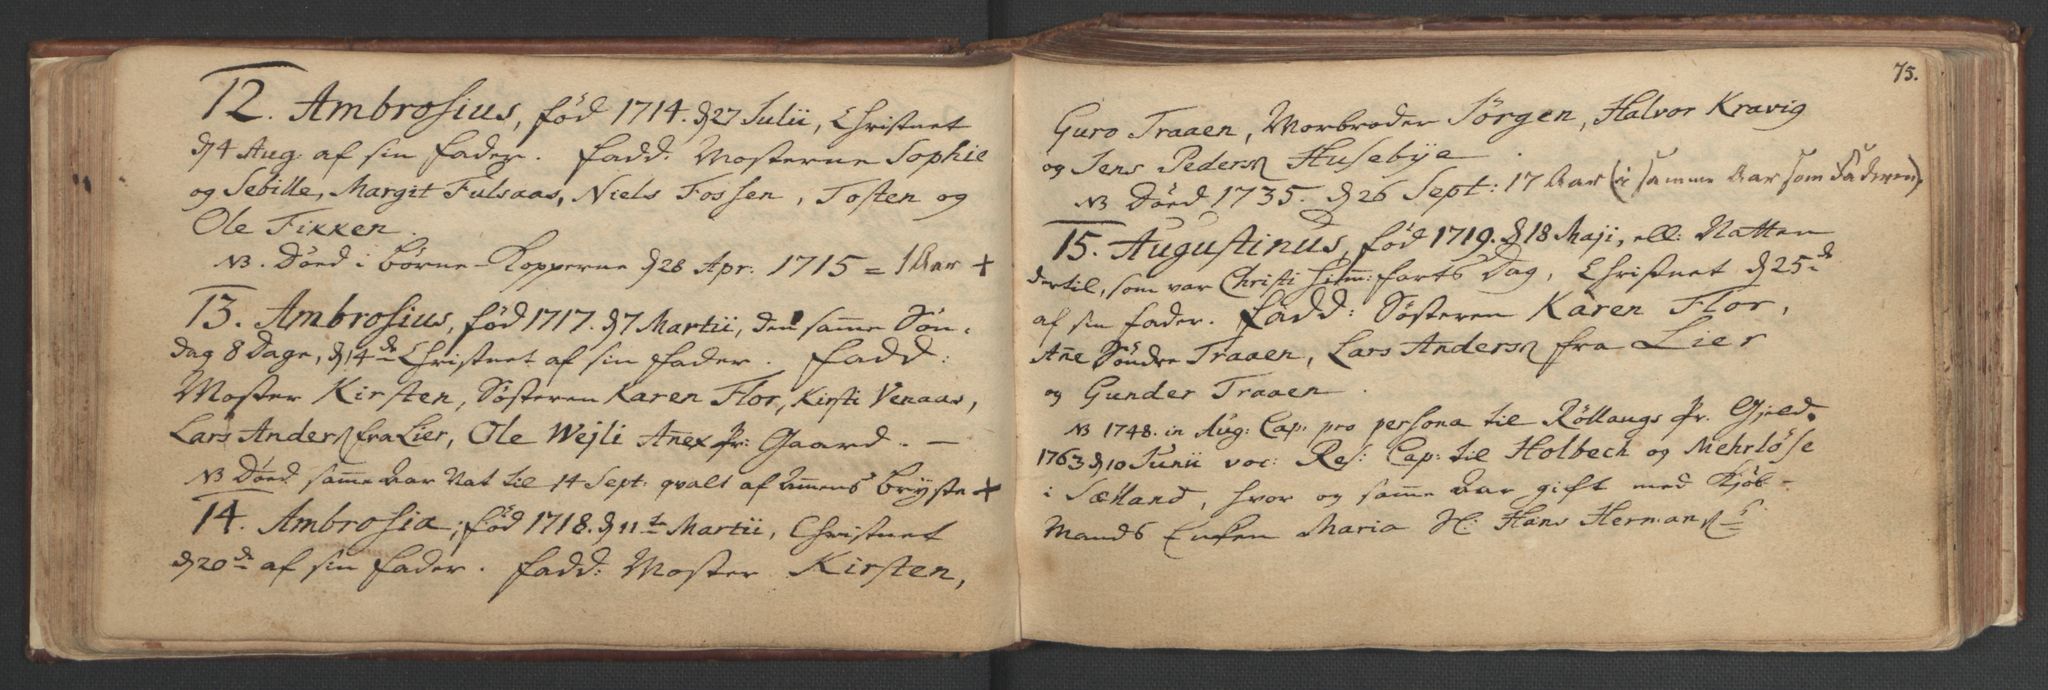 12. Ambrosius, fød 1714. d 27 Julii, Christnet
d 4 Aug. af sin fader. fadd: Mosterne Sophie
og Sebille, Margit Fulsaas, Niels Fossen, Tosten og
Ole Fikken.
NB. Døed i børne-kopperne d 28 Apr. 1715 = 1 Aar +
13. Ambrosius, fød 1717. d 7 Martii, den samme Søn-
dag 8 Dage, d 14de Christnet af sin fader. fadd:
Moster Kirsten, Søsteren Karen Flor, Kirsti Venaas,
Lars Anders. fra Lier, Ole Wejli Añex Pr: Gaard. -
NB Døed sam̃e Aar Nat til 14 Sept: qvalt af Am̃ens bryste +
14. Ambrosia, fød 1718. d 11te Martii, Christnet
d 20de af sin fader. fadd: Moster Kirsten,
75.
Guro Traaen, Morbroder Jørgen, Halvor Kravig
og Jens Peders. Husebÿe.
NB Døed 1735. d 26 Sept: 17 Aar (i samme Aar som Faderen).
15. Augustinus, fød 1719. d 18 Maji, ell: Natten
dertil, som var Christi Him̃:farts Dag, Christnet d 25de
af sin fader. fadd: Søsteren Karen Flor,
Añe Søndre Traaen, Lars Anders. fra Lier
og Gunder Traaen.
NB 1748. in Aug: Cap: pro persona til Rollaugs Pr. Gjeld.
1763 d 10 Junii voc: Res: Cap: til Holbech og Mehrløse
i Sælland, hvor og sam̃e Aar gift med Kjøb-
mands Enken Maria Sl: Hans Hermans.